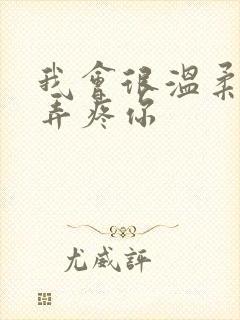 我會很溫柔
弄疼你
尤威評